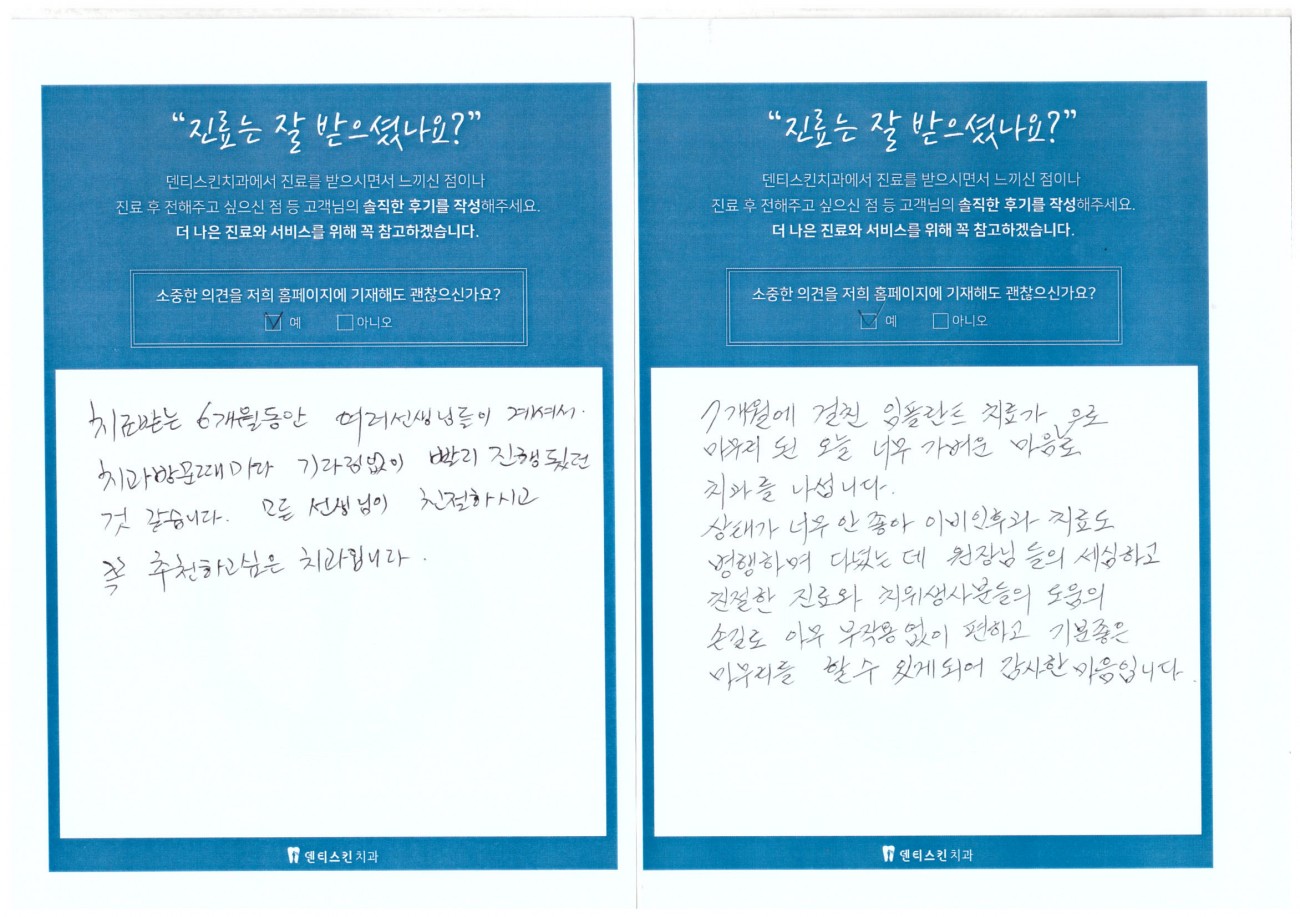 “진료는 잘 받으셨나요?”
덴티스킨치과에서 진료를 받으시면서 느끼신 점이나
진료 후 전해주고 싶으신 점 등 고객님의 솔직한 후기를 작성해주세요.
더 나은 진료와 서비스를 위해 꼭 참고하겠습니다.
소중한 의견을 저희 홈페이지에 기재해도 괜찮으신가요?
예 아니오
치료받는 6개월동안 여러선생님들이 계셔서.
치과방문때마다 기다림없이 빨리 진행됬던
것 같습니다. 모든 선생님이 친절하시고
꼭 추천하고싶은 치과됩니다.
덴티스킨치과
“진료는 잘 받으셨나요?”
덴티스킨치과에서 진료를 받으시면서 느끼신 점이나
진료 후 전해주고 싶으신 점 등 고객님의 솔직한 후기를 작성해주세요.
더 나은 진료와 서비스를 위해 꼭 참고하겠습니다.
소중한 의견을 저희 홈페이지에 기재해도 괜찮으신가요?
예 아니오
7개월에 걸친 임플란트 치료가
마무리 된 오늘 너무 가벼운 마음으로
치과를 나섭니다.
상태가 너무 안 좋아 이비인후과 치료도
병행하며 다녔는 데 원장님 들의 세심하고
친절한 진료와 치위생사분들의 도움의
손길로 아무 부작용 없이 편하고 기분좋은
마무리를 할 수 있게되어 감사한 마음입니다.
덴티스킨치과